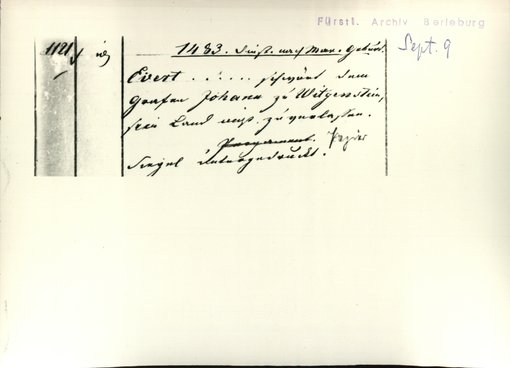 Fürstl. Archiv Berleburg
Sept. 9
1121
1483. Dinst. nach Mar. Geburt.
Evert . . . . . . schwört dem
Grafen Johann zu Witgenstein,
sein Land nicht zu verlassen.
Pergament. Papier
Siegel untergedruckt.